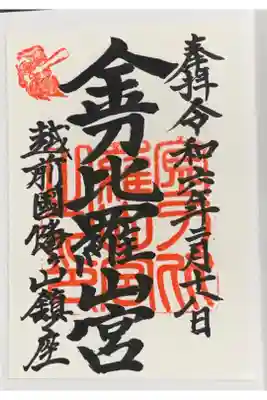 奉拝 令和六年三月十八日
金刀比羅山宮
越前國 山鎮座